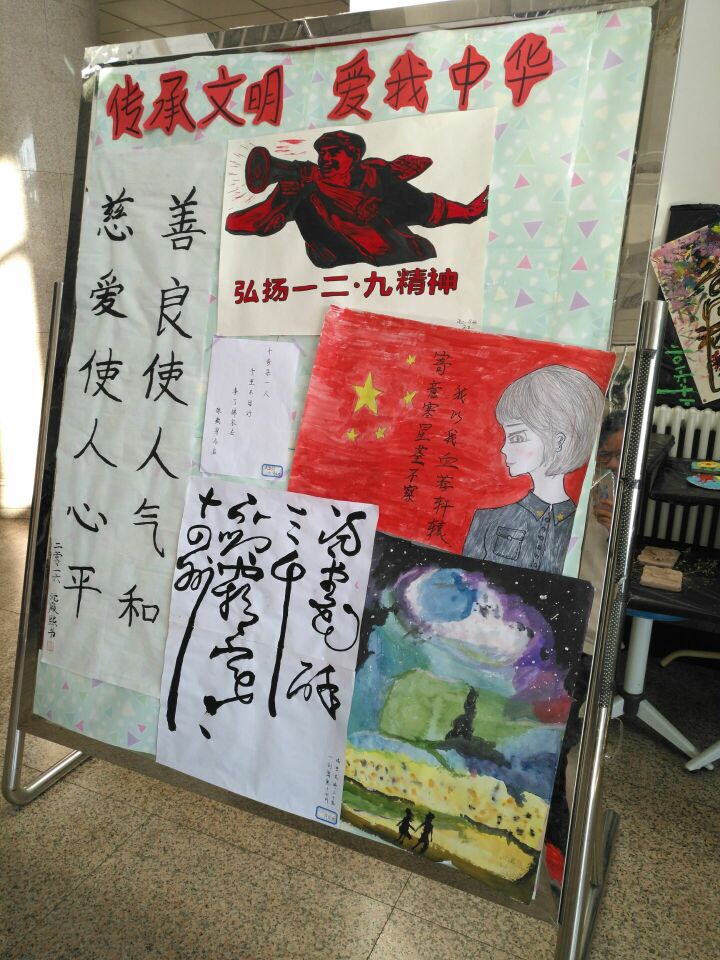 传承文明 爱我中华
弘扬一二·九精神
善良使人气和
慈爱使人心平
二零一六
十步杀一人
千里不留行
事了拂衣去
深藏身与名
我以我血荐轩辕
寄意寒星荃不察
满堂花醉
三千
十四州